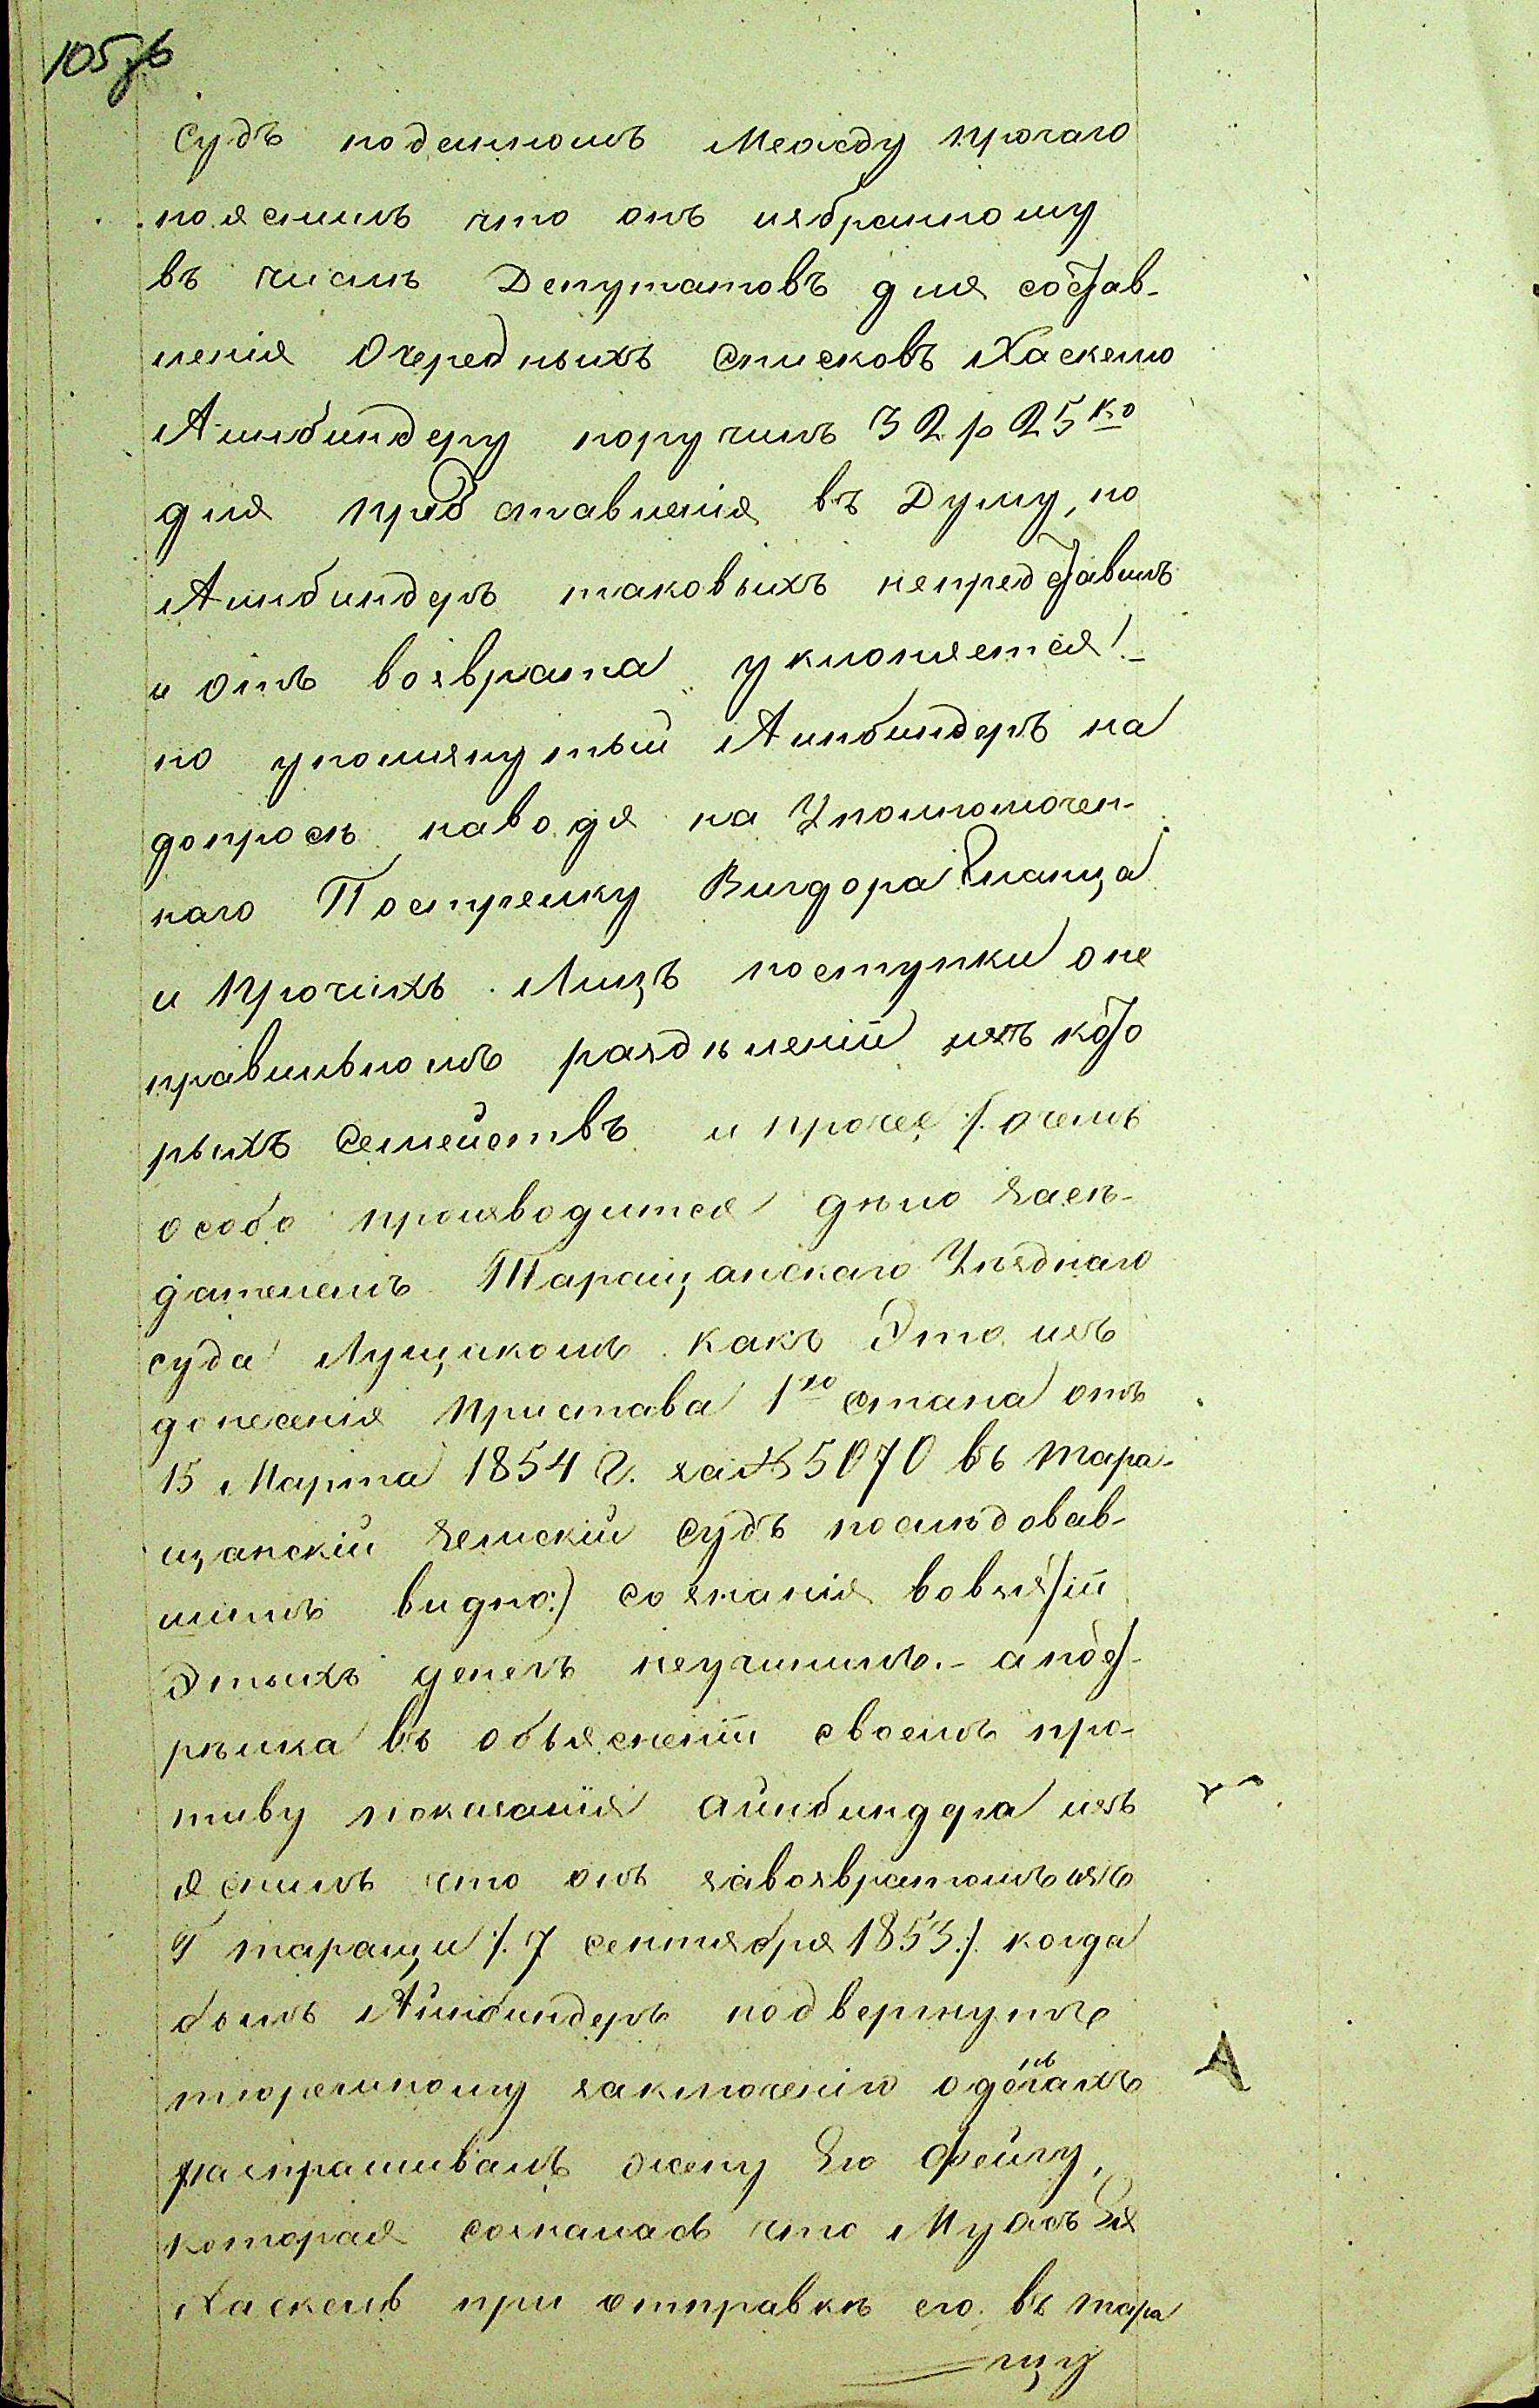 105 зв
Судъ поданномъ Между прочаго
пояснилъ что онъ избранному
въ числѣ Депутатовъ для состав-
ленія Очередныхъ списковъ Хаскелю
Аинбиндеру поручилъ 32 р 25 ко
для представленія въ Думу, но
Аинбиндеръ таковыхъ непредставилъ
и отъ возврата уклоняется! -
но упомянутый Аинбиндеръ на
допросѣ наводя на Уполномочен-
наго Пострелку Вигдора Гланца
и прочихъ Лицъ поступки о не
правильномъ раздѣленіи нѣкото
рыхъ семействъ и прочее /. очемъ
особо производится дѣло засѣ-
дателемъ Таращанскаго Уѣзднаго
суда Лущикомъ какъ Это изъ
донесенія пристава 1го стана отъ
15 Марта 1854 г. за № 5070 въ тара-
щанскій земскій судъ послѣдовав-
шимъ видно:) сознанія вовзятіи
Этыхъ денегъ неучинилъ. - а пост-
рѣлка въ объясненіи своемъ про-
тиву показанія айнбиндера изъ
яснилъ что онъ завозвратомъ изъ
г таращи /. 7 сентября 1853 ./. когда
былъ Айнбиндеръ подвергнутъ
тюремному заключенію о деньгахъ
распрашивалъ жену Его Фейгу,
которая созналась что Мужъ Ея
Хаскель при отправкѣ его въ тара
щу